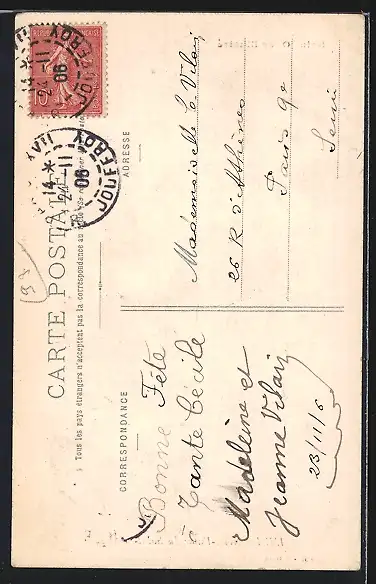 CARTE POSTALE
Tous les pays étrangers n'acceptent pas la correspondance au
CORRESPONDANCE
ADRESSE
Bonne Fête
Tante Cécile
Madeleine et
Jeanne Vilain
23/11/6
Mademoiselle C Vilain
26 R d'Athènes
Paris 9e
Seine
XVII
14 *
24-11
06
JOUFFROY
14 *
2 -11
06
JOUFFROY
FRANÇAISE
10
93